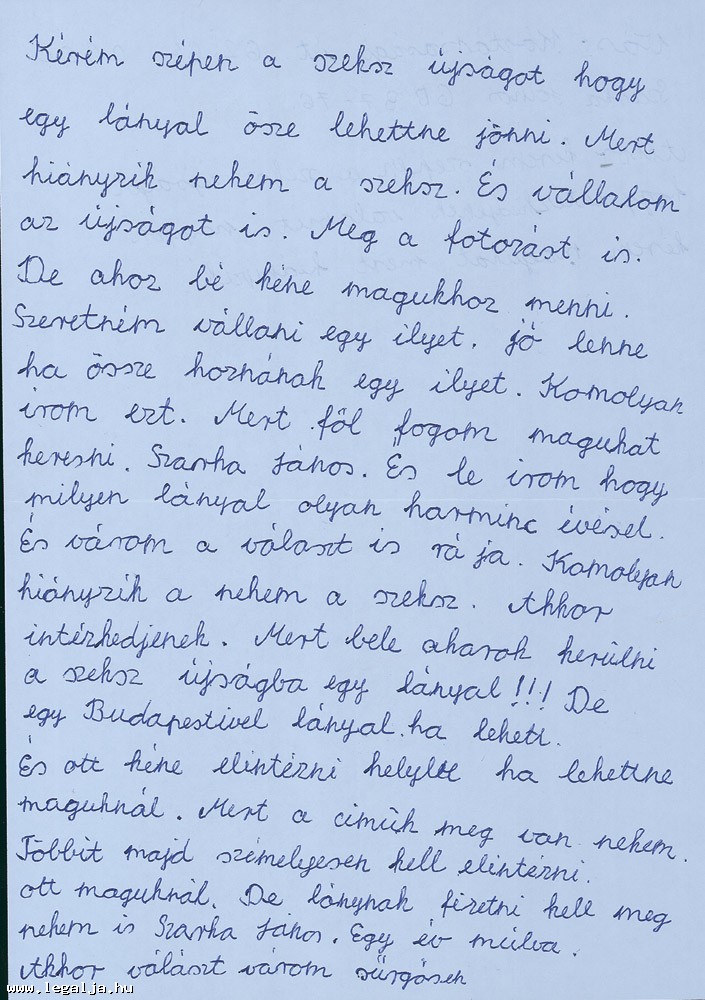 Kérém szépen a szeksz újságot hogy
egy lányal ösze lehettne jönni. Mert
hiányzik nekem a szeksz. És vállalom
az újságot is. Meg a fotozást is.
De ahoz bé kéne magukhoz menni.
Szeretném vállani egy ilyet. jó lenne
ha össze hoznának egy ilyet. Komolyan
irom ezt. Mert föl fogom magukat
keresni. Szarka János. És le irom hogy
milyen lányal olyan harminc évésel.
És várom a választ is rá ja. Komolyan
hiányzik a nekem a szeksz. Akkor
intézkedjenek. Mert bele akarok kerülni
a szeksz újságba egy lányal!!! De
egy Budapestivel lányal.ha lehett.
És ott kéne elintézni ha lehettne
maguknál. Mert a cimük meg van nekem.
Többit majd szémelyesen kell elintézni.
ott maguknál. De lánynak fizetni kell meg
nekem is Szarka János. Egy év múlva.
Akkor választ várom sürgösen
www.legalja.hu